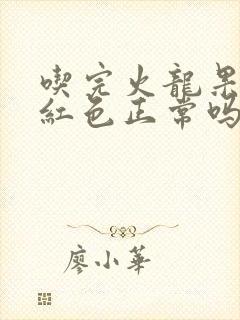 喫完火龍果
紅色正常嗎
廖小華